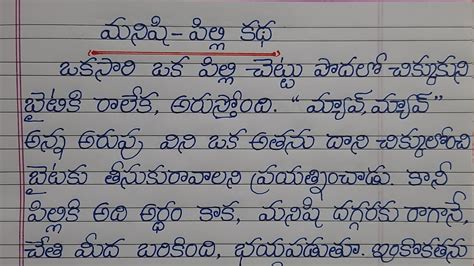 మనిషి - పిల్లి కథ
ఒకసారి ఒక పిల్లి చెట్టు పొదలో చిక్కుకుని
బైటికి రాలేక, అరుస్తోంది. "మ్యావ్, మ్యావ్"
అన్న అరుపు విని ఒక అతను దాని చిక్కులోంచి
బైటకు తీసుకురావాలని ప్రయత్నించాడు. కానీ
పిల్లికి అది అర్థం కాక, మనిషి దగ్గరకు రాగానే,
చేతి మీద బరికింది, భయపడుతూ. ఇంకొకతను